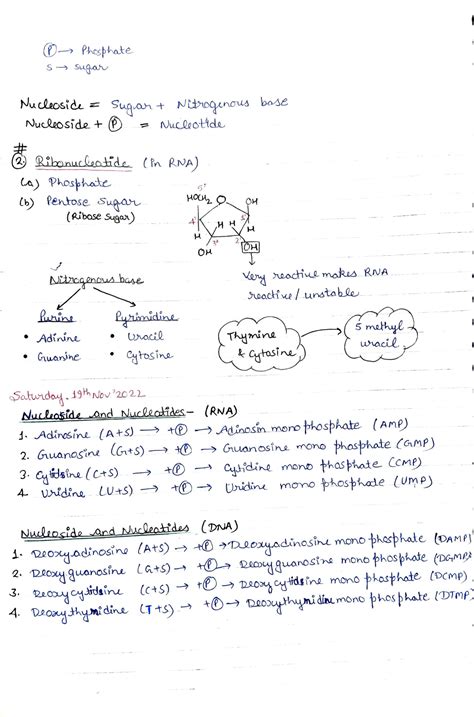 Ⓟ → Phosphate
S → Sugar
Nucleoside = Sugar + Nitrogenous base
Nucleoside + Ⓟ = Nucleotide
#
② Ribonucleotide (in RNA)
(a) Phosphate
(b) Pentose Sugar
(Ribose Sugar)
5'
HOCH2 O OH
4' 1'
H H H H
3' 2'
OH OH
Very reactive makes RNA
reactive/unstable
Nitrogenous base
Purine Pyrimidine
• Adinine • Uracil
• Guanine • Cytosine
Thymine
& Cytosine
5 methyl
uracil
Saturday, 19th Nov'2022
Nucleoside and Nucleotides - (RNA)
1. Adinosine (A+S) → +Ⓟ → Adinosin mono phosphate (AMP)
2. Guanosine (G+S) → +Ⓟ → Guanosine mono phosphate (GMP)
3. Cytidine (C+S) → +Ⓟ → Cytidine mono phosphate (CMP)
4. Uridine (U+S) → +Ⓟ → Uridine mono phosphate (UMP)
Nucleoside and Nucleotides (DNA)
1. Deoxyadinosine (A+S) → +Ⓟ → Deoxyadinosine mono phosphate (DAMP)
2. Deoxyguanosine (G+S) → +Ⓟ → Deoxyguanosine mono phosphate (DGMP)
3. Deoxycytidine (C+S) → +Ⓟ → Deoxycytidine mono phosphate (DCMP)
4. Deoxythymidine (T+S) → +Ⓟ → Deoxythymidine mono phosphate (DTMP)